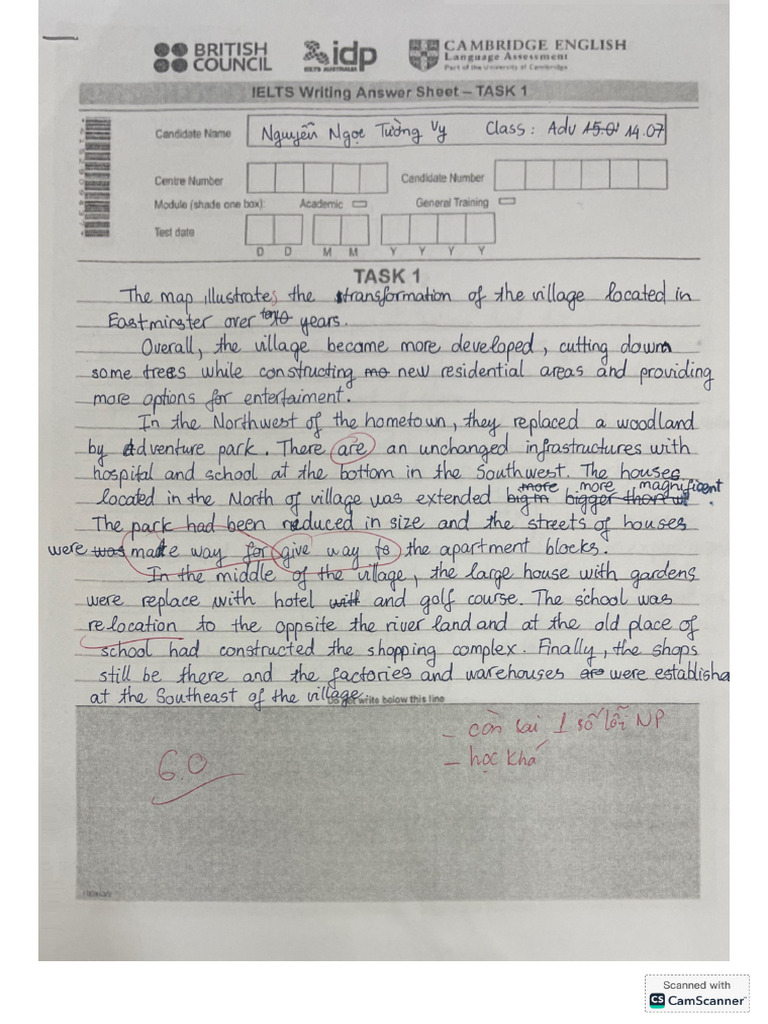 BRITISH COUNCIL
idp
IELTS AUSTRALIA
CAMBRIDGE ENGLISH
Language Assessment
Part of the University of Cambridge
IELTS Writing Answer Sheet – TASK 1
Candidate Name Nguyễn Ngọc Tường Vy Class: Adv 15.01 14.07
Centre Number Candidate Number
Module (shade one box): Academic General Training
Test date
D D M M Y Y Y Y
TASK 1
The map illustrates the transformation of the village located in
Eastminster over ten years.
Overall, the village become more developed, cutting down
some trees while constructing new residential areas and providing
more options for entertaiment.
In the Northwest of the hometown, they replaced a woodland
by Adventure park. There are an unchanged infrastructures with
hospital and school at the bottom in the Southwest. The houses
located in the North of village was extended more more magnificent.
The park had been reduced in size and the streets of houses
were was made way for give way to the apartment blocks.
In the middle of the village, the large house with gardens
were replace with hotel with and golf course. The school was
relocation to the oppsite the river land and at the old place of
school had constructed the shopping complex. Finally, the shops
still be there and the factories and warehouses are were establisha
at the Southeast of the village
Do not write below this line
6.0
- còn sai 1 số lỗi NP
- học khá
Scanned with
CS CamScanner